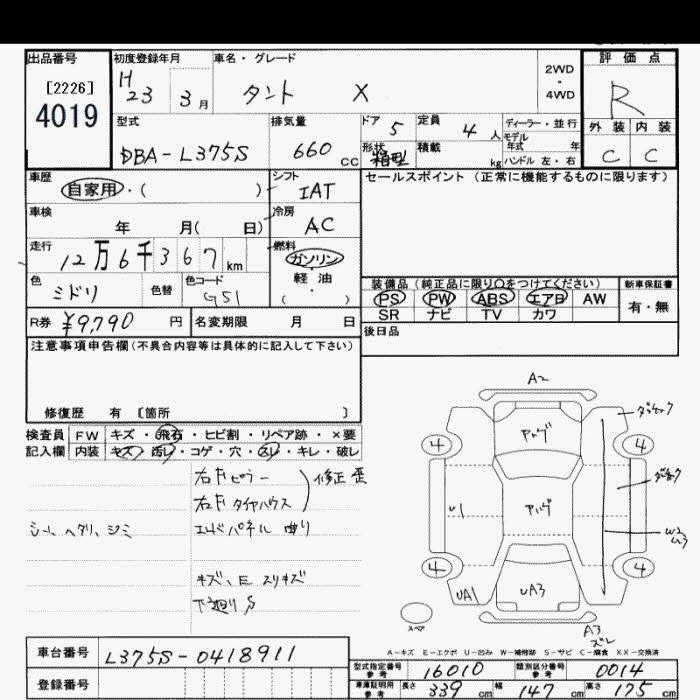 出品番号
[2226]
4019
初度登録年月
H23 3月
車名・グレード
タント X
2WD・4WD
評価点
R
外装 内装
C C
型式
DBA-L375S
排気量
660 cc
ドア 5
定員 4人
形状 箱型
積載 kg
ディーラー・並行
モデル年式 年
ハンドル 左・右
車歴
自家用・( )
シフト
IAT
車検
年 月( 日)
冷房
AC
走行
12万6千367km
燃料
ガソリン
軽油
( )
色
ミドリ
色替
色コード
G51
R券 ¥9,790 円
名変期限 月 日
セールスポイント(正常に機能するものに限ります)
装備品(純正品に限り○をつけてください)
PS PW ABS エアB AW
SR ナビ TV カワ
新車保証書
有・無
後日品
注意事項申告欄(不具合内容等は具体的に記入して下さい)
修復歴 有 〔箇所 〕
検査員記入欄
FW キズ・飛石・ヒビ割・リペア跡・×要
内装 キズ・汚レ・コゲ・穴・スレ・キレ・破レ
右Fピラー
右Fタイヤハウス
修正 歪
シート ヘタリ、シミ
エンドパネル 曲り
キズ、E スリキズ
下廻りS
A2
4
4
4
4
U1
UA1
UA3
W2
A3
ズレ
スペア
A-キズ E-エクボ U-凹み W-補修跡 S-サビ C-腐食 XX-交換済
車台番号
L375S-0418911
登録番号
型式指定番号 参考 16010
類別区分番号 参考 0014
車庫証明用 参考 長さ 339 cm 幅 147 cm 高さ 175 cm